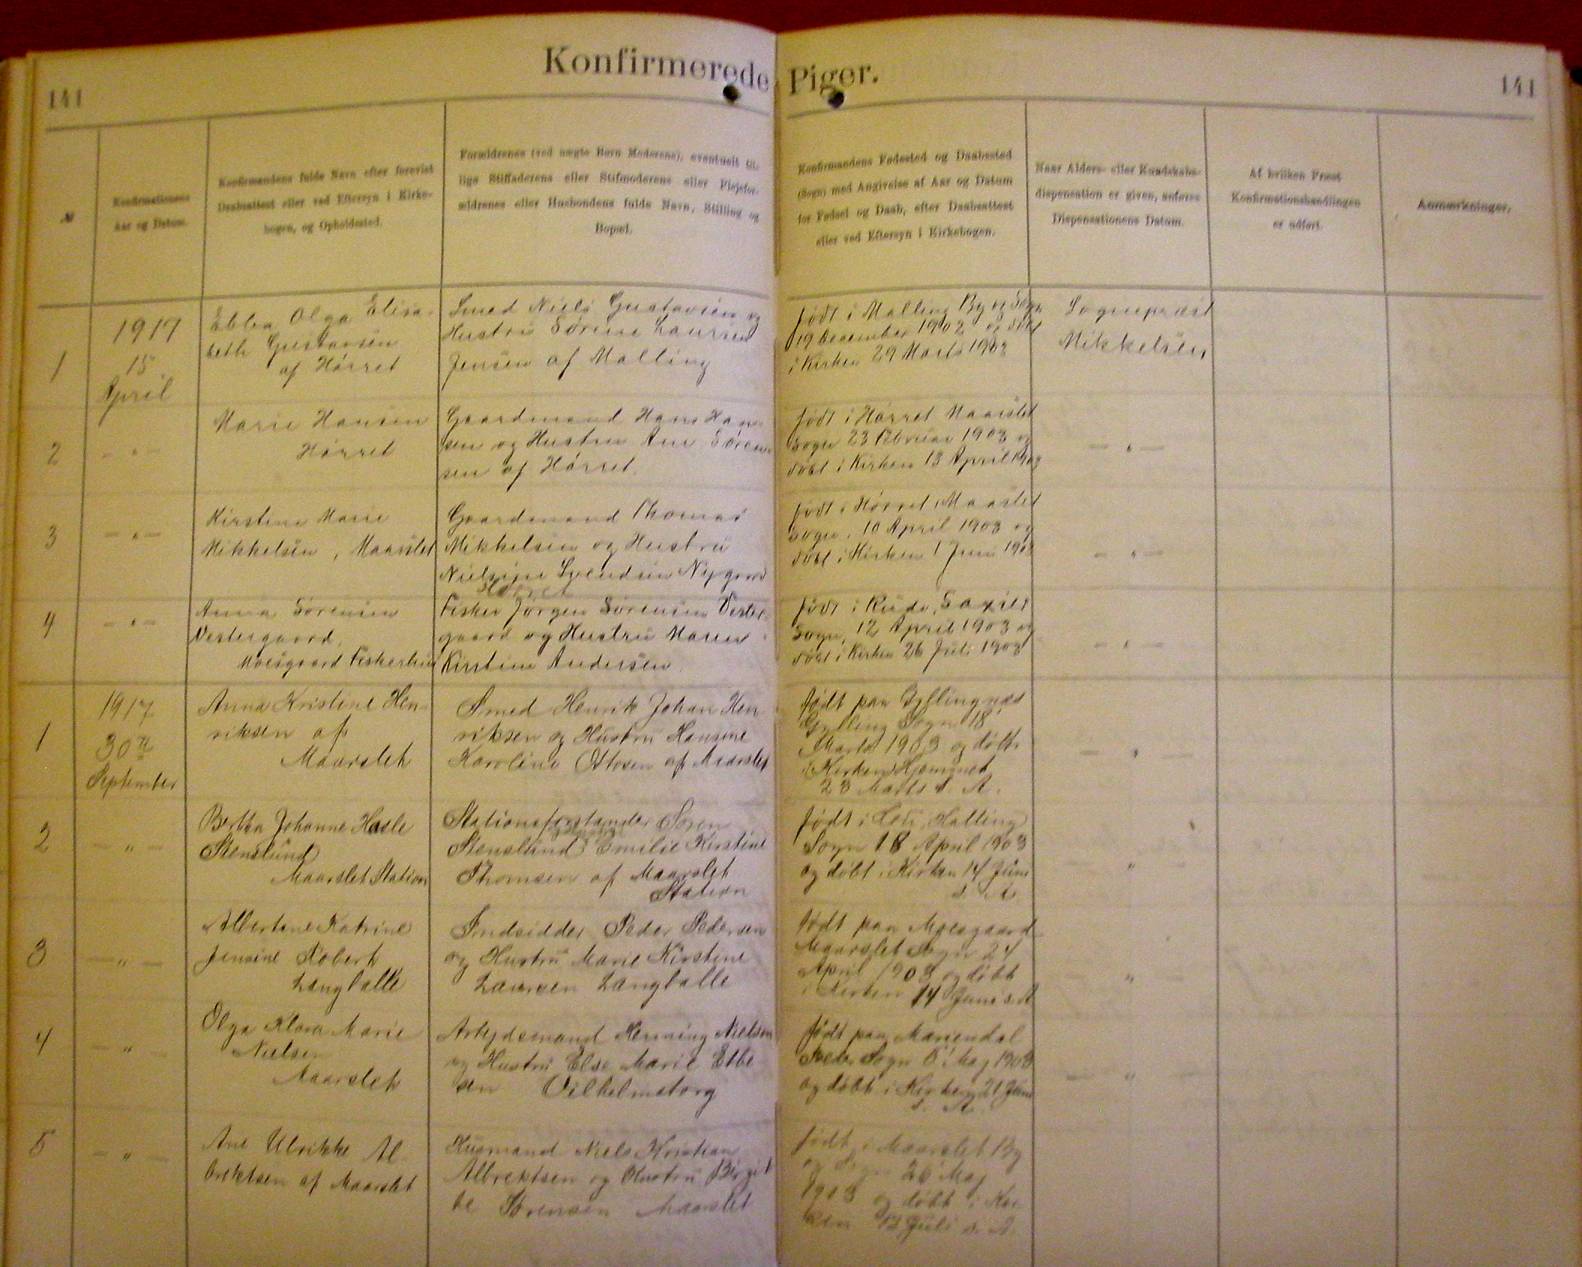 Konfirmerede Piger.
141
141
№
Konfirmationens
Aar og Datum.
Konfirmandens fulde Navn efter forevist
Daabsattest eller ved Eftersyn i Kirke-
bogen, og Opholdssted.
Forældrenes (ved uægte Børn Moderens), eventuelt til-
lige Stiffaderens eller Stifmoderens eller Plejefor-
ældrenes eller Husbondens fulde Navn, Stilling og
Bopæl.
Konfirmandens Fødested og Daabssted
(Sogn) med Angivelse af Aar og Datum
for Fødsel og Daab, efter Daabsattest
eller ved Eftersyn i Kirkebogen.
Naar Alders- eller Kundskabs-
dispensation er given, anføres
Dispensationens Datum.
Af hvilken Præst
Konfirmationshandlingen
er udført.
Anmærkninger.
1
1917
15
April
Ebba Olga Elisa-
beth Gustavsen
af Hørret
Smed Niels Gustavsen og
Hustru Sørine Laursen
Jensen af Malling
født i Malling By og Sogn
19 December 1902 og døbt
i Kirken 29 Marts 1903
Sognepræst
Mikkelsen
2
— " —
Marie Hansen
Hørret
Gaardmand Hans Han-
sen og Hustru Ane Søren-
sen af Hørret.
født i Hørret Maarslet
Sogn 23 Februar 1903 og
døbt i Kirken 13 April 1903
— " —
3
— " —
Kirstine Marie
Mikkelsen, Maarslet
Gaardmand Thomas
Mikkelsen og Hustru
Nielsine Svendsen Nygaard
født i Hørret Maarslet
Sogn, 10 April 1903 og
døbt i Kirken 1 Juni 1903
— " —
4
— " —
Anna Sørensen
Vestergaard,
Moesgaard Fiskerhus
Fisker Jørgen Sørensen Vester-
gaard og Hustru Maren
Kirstine Andersen.
født i Rude, Saxild
Sogn, 12 April 1903 og
døbt i Kirken 26 Juli 1903
— " —
1
1917
30te
September
Anna Kristine Hen-
riksen af
Maarslet
Smed Henrik Johan Hen-
riksen og Hustru Hansine
Karoline Ottosen af Maarslet
født paa Gyllingnæs
Gylling Sogn 18
Marts 1903 og døbt
Hjemmet
23 Marts s. A.
— " —
2
— " —
Bertha Johanne Hasle
Stenslund
Maarslet Station
Stationsforstander Søren
Stenslund Emilie Kirstine
Thomsen af Maarslet
Station
født i Hatting
Sogn 18 April 1903
og døbt i Kirken 14 Juni
s. A.
"
3
— " —
Albertine Katrine
Jensine Robert
Langballe
Indsidder Peder Pedersen
og Hustru Marie Kirstine
Laursen Langballe
født paa Moesgaard
Maarslet Sogn 24
April 1903 og døbt
i Kirken 14 Juni s. A
"
4
— " —
Olga Klara Marie
Nielsen
Maarslet
Arbejdsmand Henning Nielsen
og Hustru Else Marie Ebbe-
sen Vilhelmsborg
født paa Mariendal
Sogn 5 Maj 1903
og døbt i Kirken 21 Juni
s. A.
— " —
5
— " —
Ane Ulrikke Al-
brektsen af Maarslet
Husmand Niels Kristian
Albrektsen og Hustru Birgit-
te Sørensen Maarslet
født i Maarslet By
og Sogn 26 Maj
1903 og døbt i Kir-
ken 12 Juli s. A.